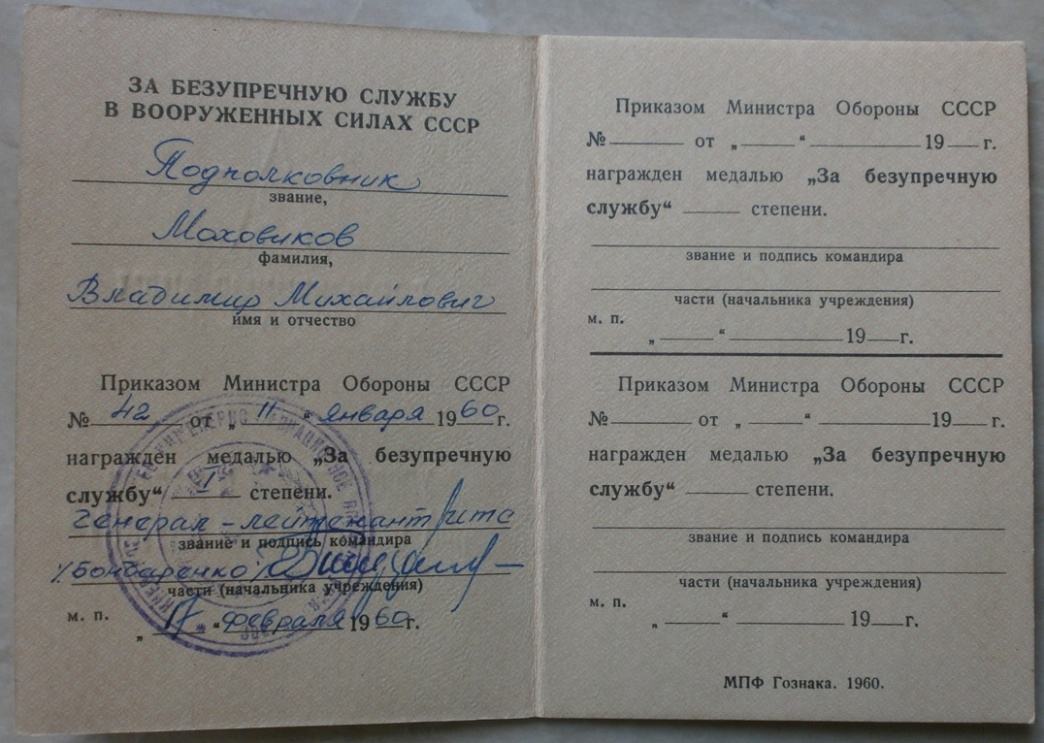 ЗА БЕЗУПРЕЧНУЮ СЛУЖБУ
В ВООРУЖЕННЫХ СИЛАХ СССР
Подполковник
звание,
Моховиков
фамилия,
Владимир Михайлович
имя и отчество
Приказом Министра Обороны СССР
№ 42 от „11“ января 1960 г.
награжден медалью „За безупречную
службу“ I степени.
Генерал-лейтенант
звание и подпись командира
Бондаренко
части (начальника учреждения)
м. п.
„17“ февраля 1960 г.
Приказом Министра Обороны СССР
№ от „ “ 19 г.
награжден медалью „За безупречную
службу“ степени.
звание и подпись командира
части (начальника учреждения)
м. п.
„ “ 19 г.
Приказом Министра Обороны СССР
№ от „ “ 19 г.
награжден медалью „За безупречную
службу“ степени.
звание и подпись командира
части (начальника учреждения)
м. п.
„ “ 19 г.
МПФ Гознака. 1960.